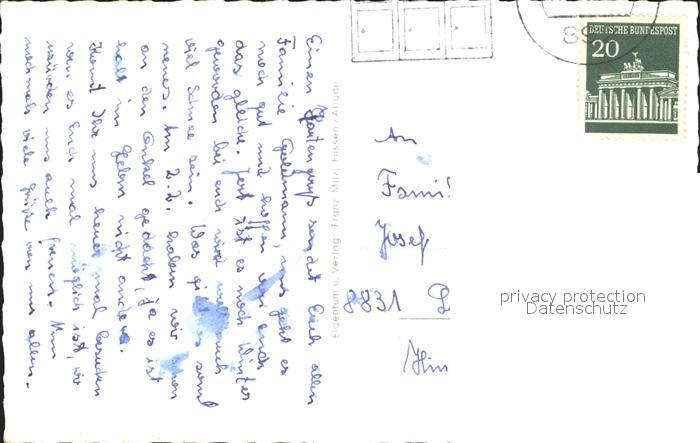 Einen Kartengruß sendet Euch allen
Familie Guldmann, uns geht es
noch gut und hoffen von euch
das gleiche. Jetzt ist es noch Winter
geworden bei euch wird auch
viel Schnee sein. Was gibt es sonst
neues. Am 2.2. haben wir schon
an den Onkel gedacht, ja es ist
halt im Leben nicht anders.
Kommt Ihr uns heuer mal besuchen
wen es Euch mal möglich ist, wir
würden uns auch freuen. Nun
nochmals viele Grüße von uns allen.
Eigentum u. Verlag: Franz Milz, Füssen / Allgäu
89
DEUTSCHE BUNDESPOST
20
An
Famil
Josef
8831 D
Him
privacy protection
Datenschutz